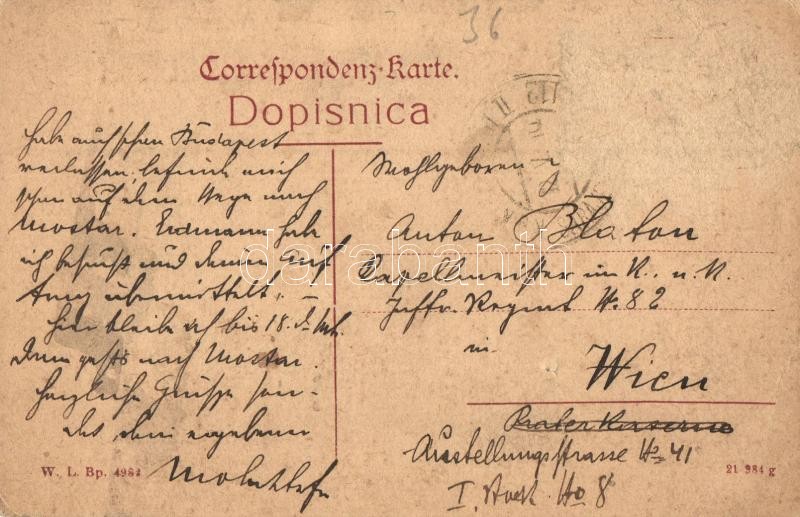 36
Correspondenz-Karte.
Dopisnica
habe auch schon Budapest
verlassen, befinde mich
schon auf dem Wege nach
Mostar. Erdmann habe
ich besucht und deinen Auf
trag übermittelt. –
hier bleibe ich bis 18. d. Mt.
dann gehts nach Mostar.
herzliche Grüsse sen-
det dein ergebener
W. L. Bp. 4984
Wohlgeboren
Anton Blaton
Capellmeister im K. u. K.
Inftr. Regmt No 82
in
Wien
Prater Kaserne
Ausstellungsstrasse No 41
I. Stock No 8
21 984 g
darabanth